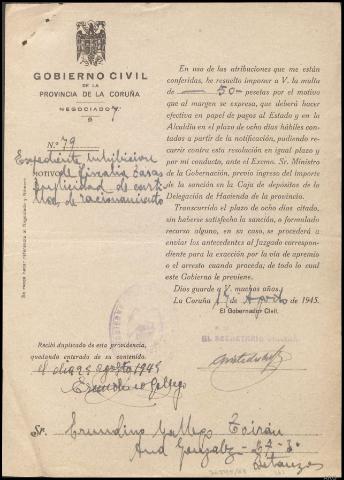 GOBIERNO CIVIL
DE LA
PROVINCIA DE LA CORUÑA
NEGOCIADO 7
N.º 79
Expediente
MOTIVO de fiscalia
duplicidad de carti
llas de racionamiento
Se ruega hacer referencia al Negociado y Número
En uso de las atribuciones que me están
conferidas, he resuelto imponer a V. la multa
de — 50 — pesetas por el motivo
que al margen se expresa, que deberá hacer
efectiva en papel de pagos al Estado y en
la Alcaldía en el plazo de ocho días hábiles con-
tados a partir de la notificación, pudiendo re-
currir contra esta resolución en igual plazo y
por mi conducto, ante el Excmo. Sr. Ministro
de la Gobernación, previo ingreso del importe
de la sanción en la Caja de depósitos de la
Delegación de Hacienda de la provincia.
Transcurrido el plazo de ocho días citado,
sin haberse satisfecho la sanción, o formulado
recurso alguno, en su caso, se procederá a
enviar los antecedentes al Juzgado correspon-
diente para la exacción por la vía de apremio
o el arresto cuando proceda; de todo lo cual
este Gobierno le previene.
Dios guarde a V. muchos años.
La Coruña 14 de de 1945.
El Gobernador Civil,
EL SECRETARIO GENERAL
Recibí duplicado de esta providencia,
quedando enterado de su contenido.
agosto 1945
Sr.
Ana González - 27-3º
Betanzos